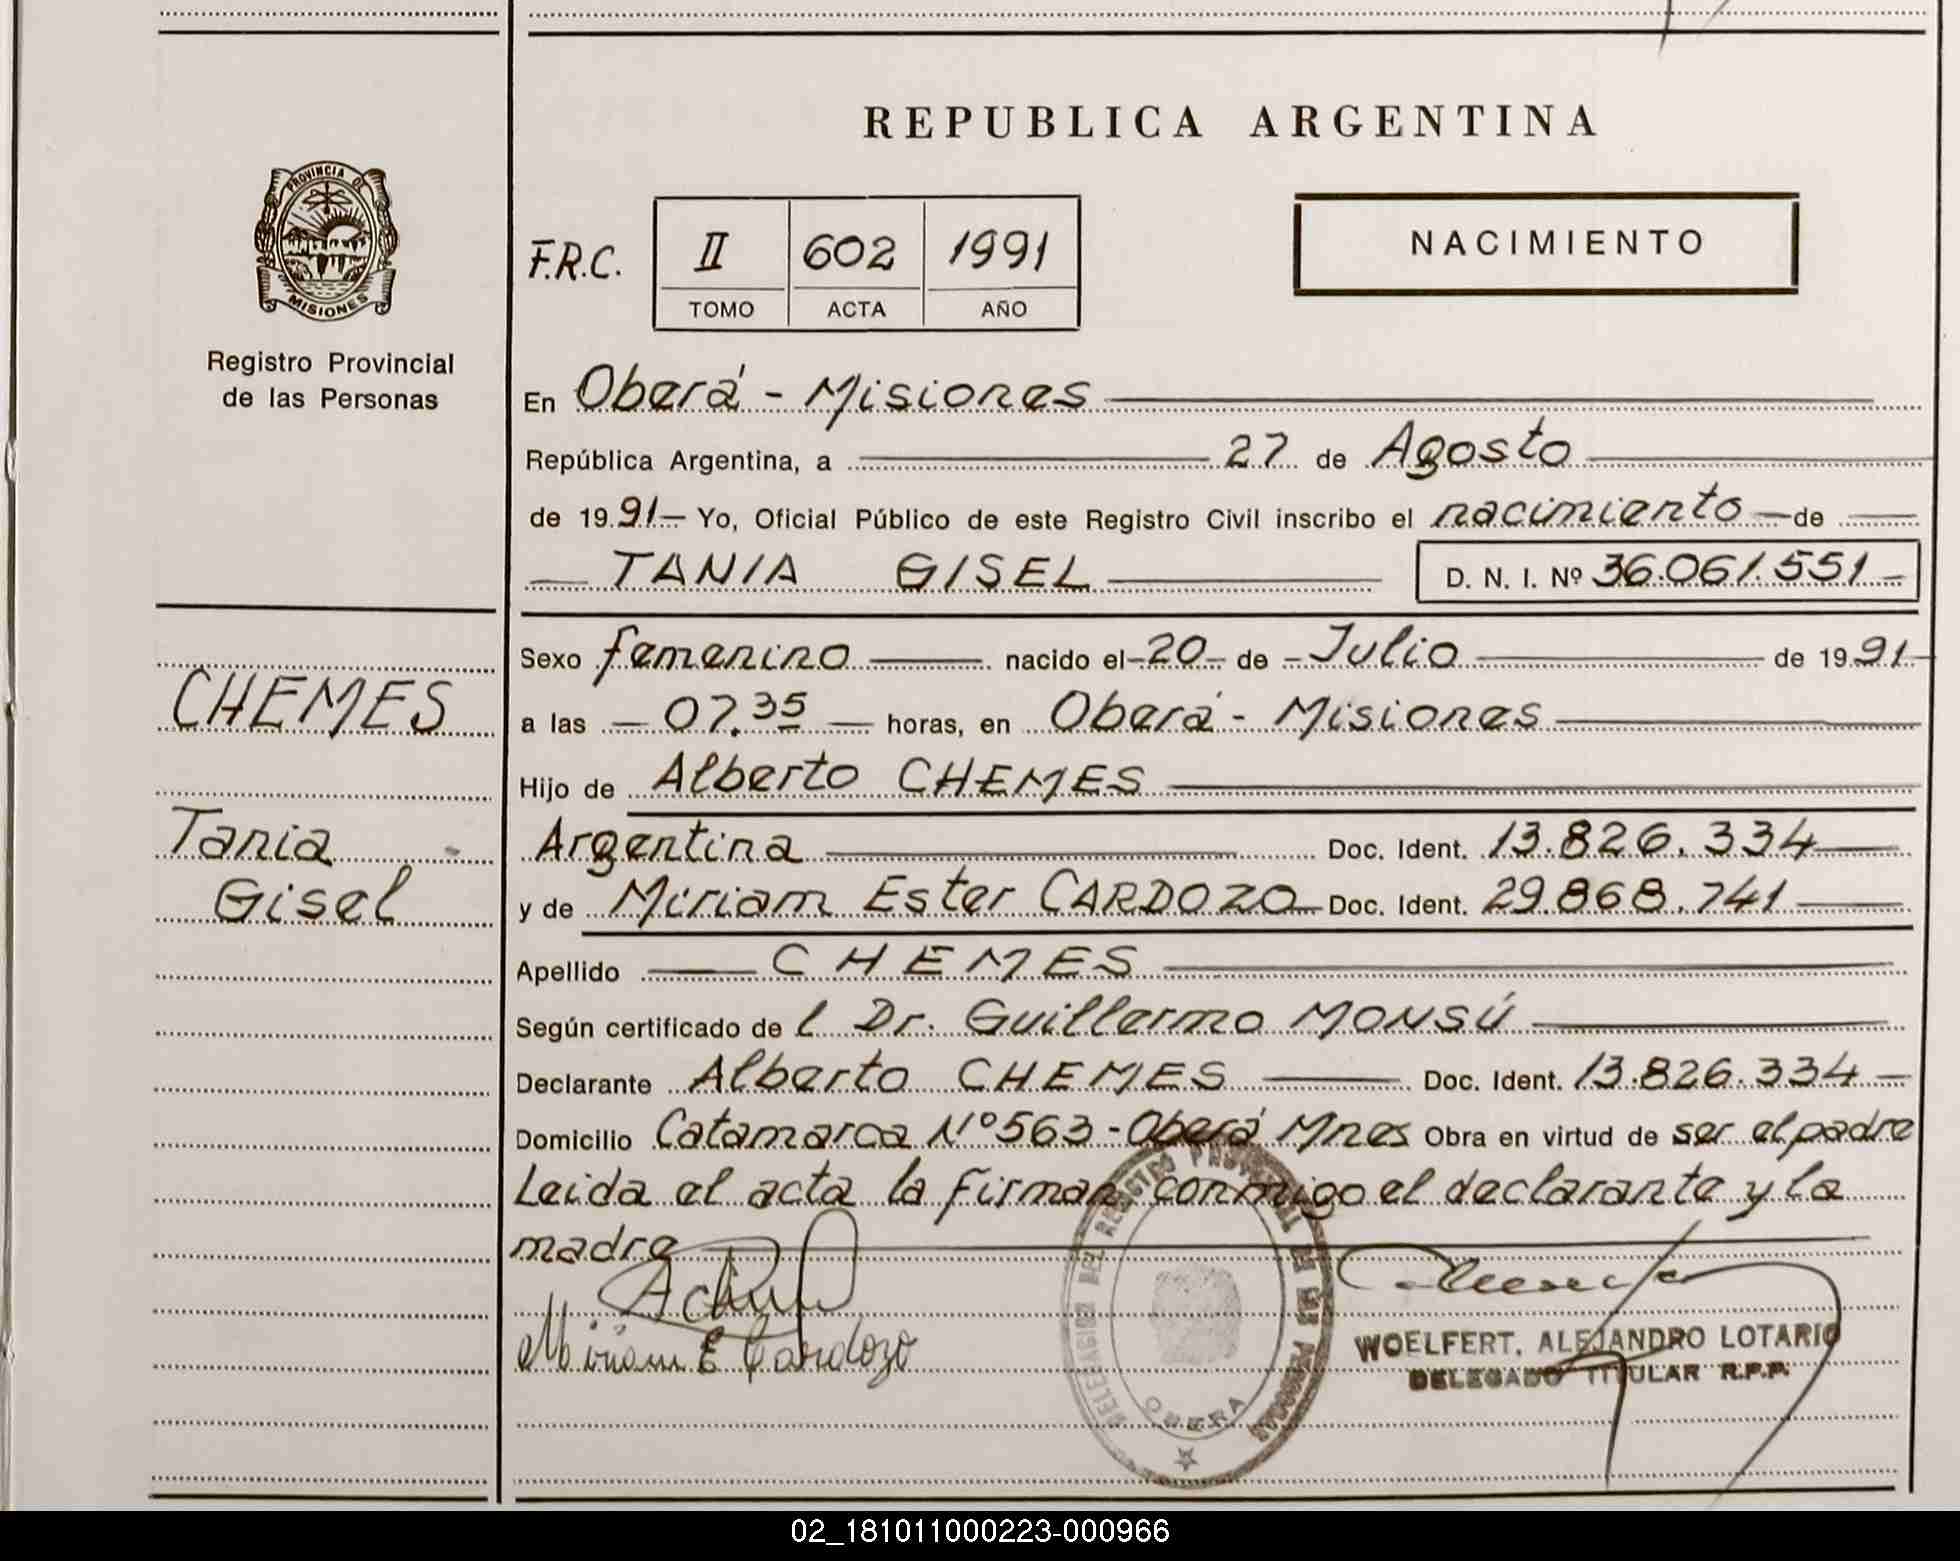 REPUBLICA ARGENTINA
PROVINCIA DE
MISIONES
Registro Provincial
de las Personas
F.R.C. II 602 1991
TOMO ACTA AÑO
NACIMIENTO
En Oberá - Misiones
República Argentina, a 27 de Agosto
de 1991 Yo, Oficial Público de este Registro Civil inscribo el nacimiento de
TANIA GISEL D. N. I. Nº 36.061.551
Sexo femenino nacido el 20 de Julio de 1991
CHEMES
a las 07.35 horas, en Oberá - Misiones
Hijo de Alberto CHEMES
Tania
Argentina Doc. Ident. 13.826.334
Gisel
y de Miriam Ester CARDOZO Doc. Ident. 29.868.741
Apellido CHEMES
Según certificado de l Dr. Guillermo MONSÚ
Declarante Alberto CHEMES Doc. Ident. 13.826.334
Domicilio Catamarca Nº 563 - Oberá Mnes Obra en virtud de ser el padre
Leida el acta la firman conmigo el declarante y la
madre
Miriam E Cardozo
DELEGACION DEL REGISTRO PROVINCIAL DE LAS PERSONAS
OBERA
WOELFERT, ALEJANDRO LOTARIO
DELEGADO TITULAR R.P.P.
02_181011000223-000966